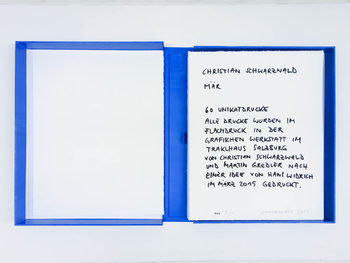 CHRISTIAN SCHWARZWALD
MÄR
60 UNIKATDRUCKE
ALLE DRUCKE WURDEN IM
FLACHDRUCK IN DER
GRAFISCHEN WERKSTATT IM
TRAKLHAUS SALZBURG
VON CHRISTIAN SCHWARZWALD
UND MARTIN GREDLER NACH
EINER IDEE VON HANS WIDRICH
IM MÄRZ 2015 GEDRUCKT.